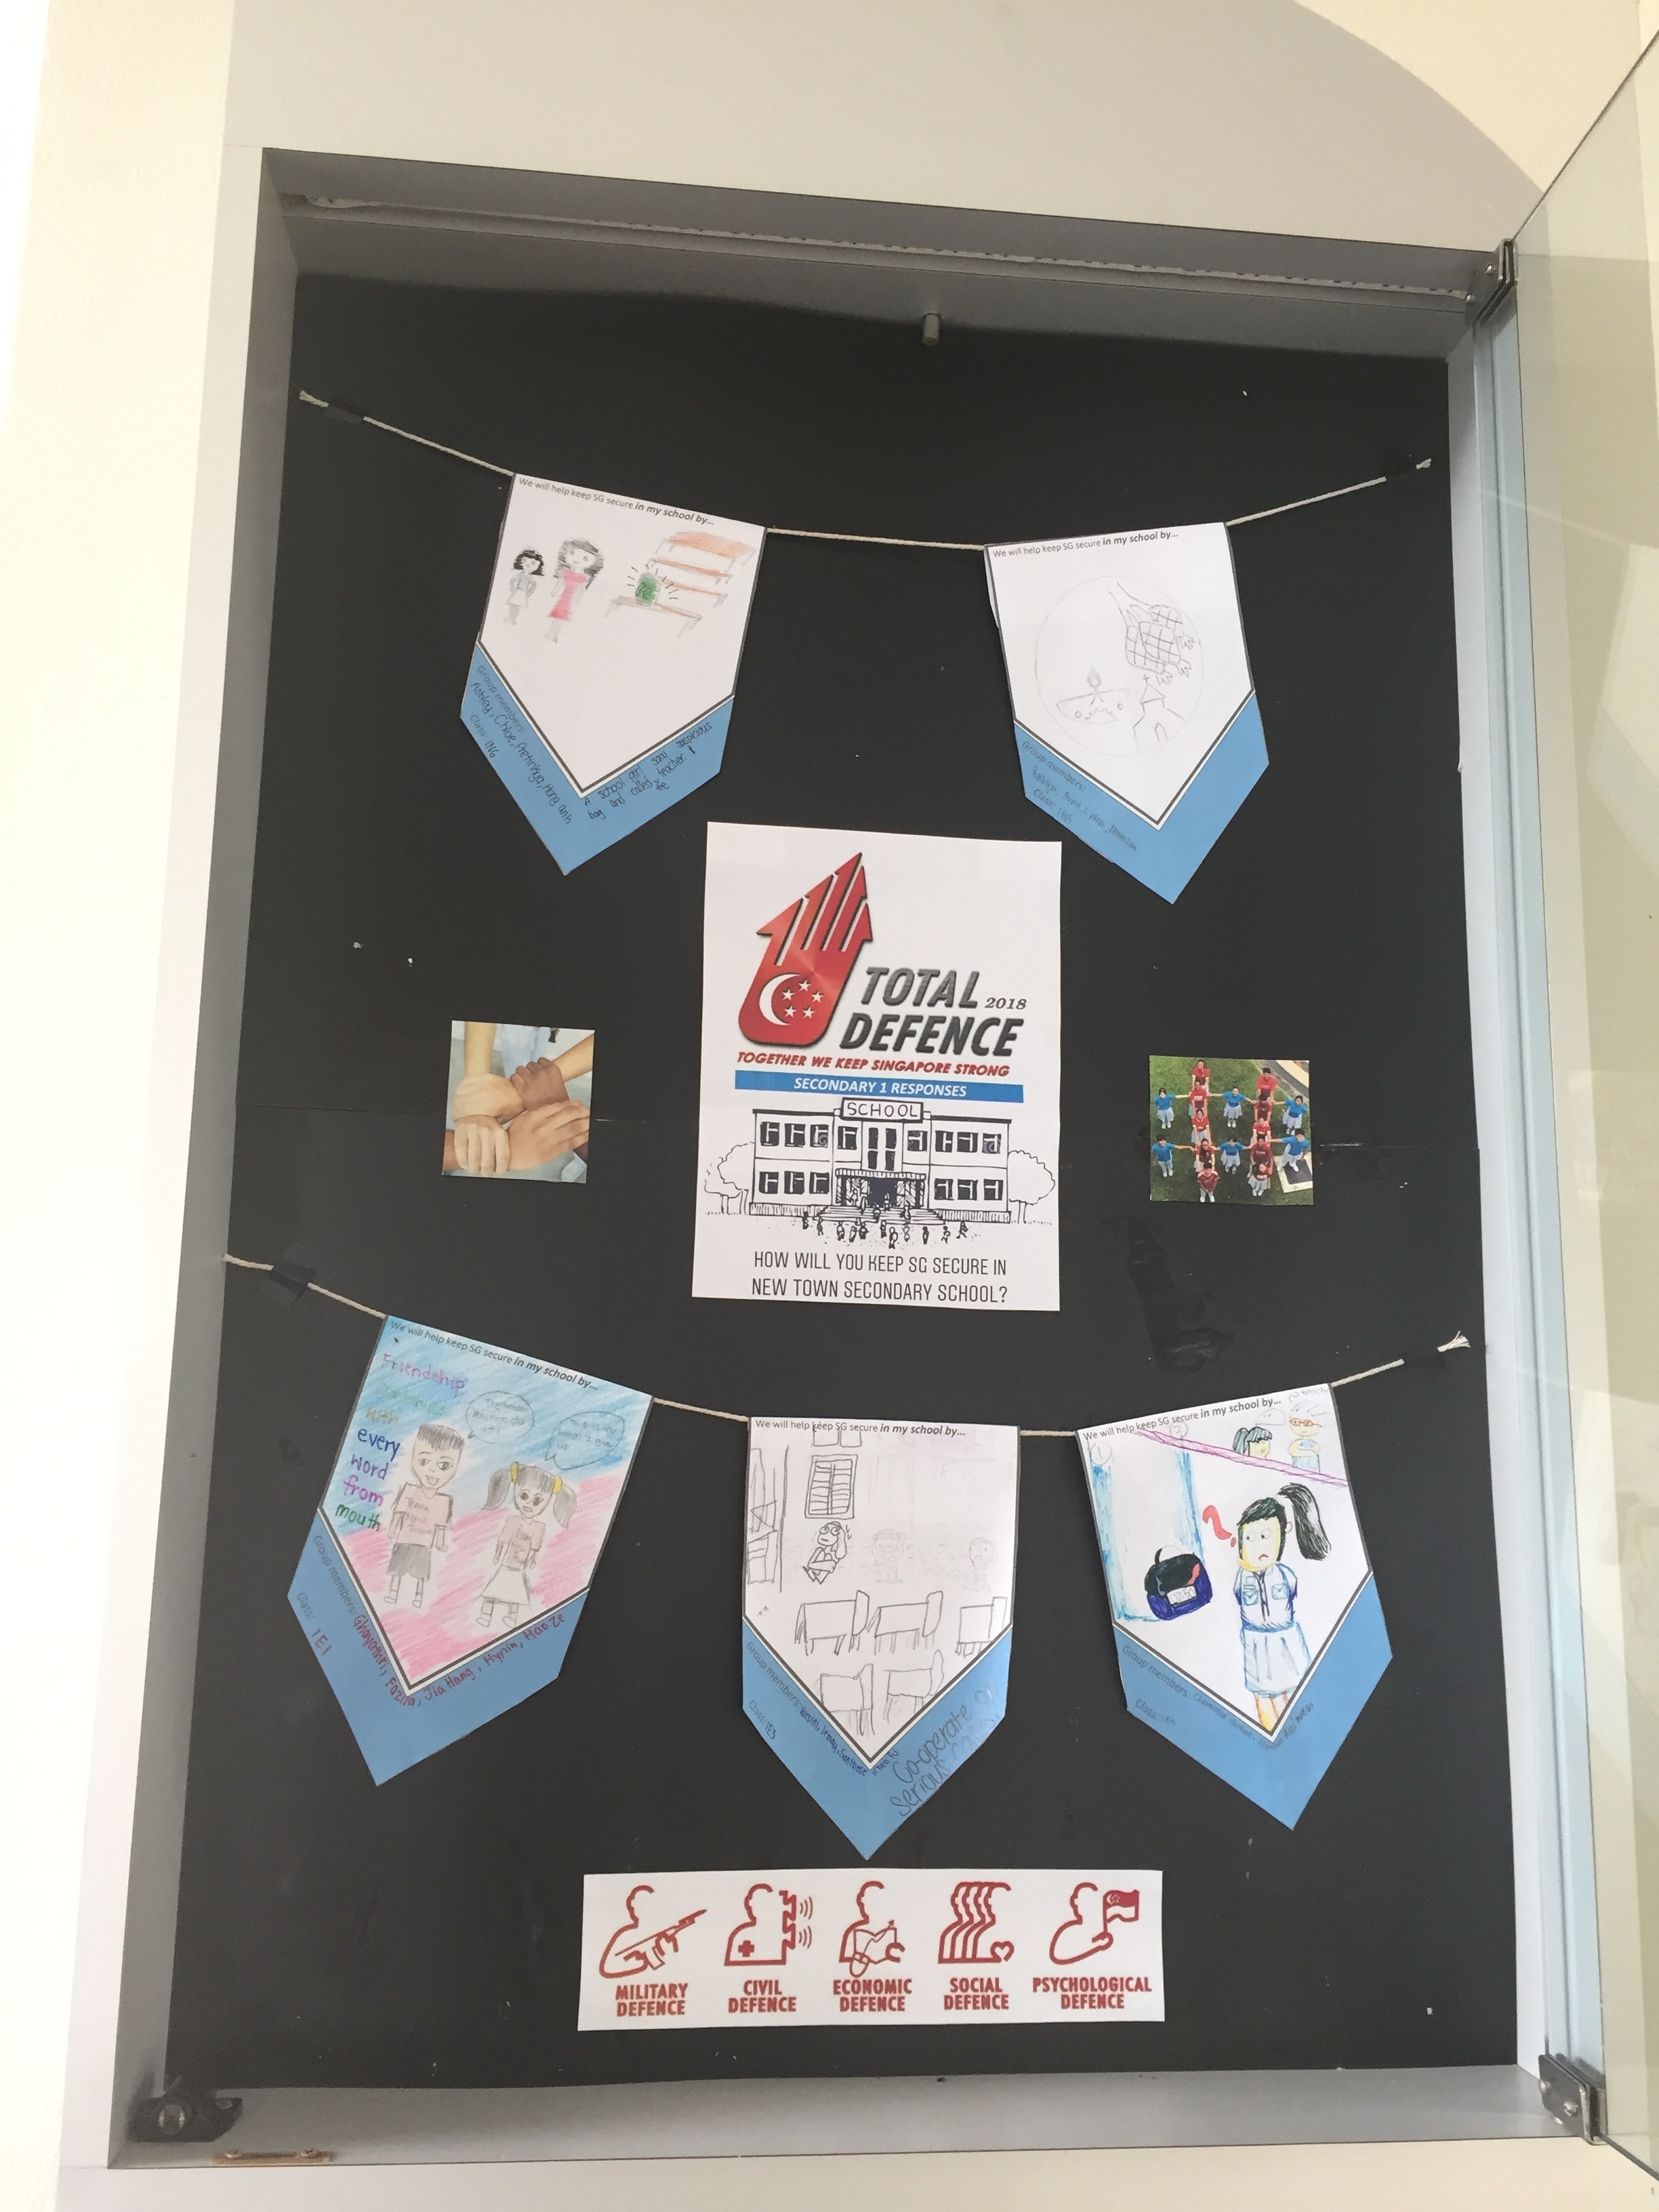 We will help keep SG secure in my school by...
Group members:
Ashley, Chloe,
Class: 1N6
school girl saw
bag and called teacher
We will help keep SG secure in my school by...
Group members:
Class:
TOTAL 2018
DEFENCE
TOGETHER WE KEEP SINGAPORE STRONG
SECONDARY 1 RESPONSES
SCHOOL
HOW WILL YOU KEEP SG SECURE IN
NEW TOWN SECONDARY SCHOOL?
We will help keep SG secure in my school by...
Friendship
with
every
word
from
mouth
Group members: Fazlia, Jia Hang, Hynin, Hao Ze
Class: 1E1
We will help keep SG secure in my school by...
Group members:
Class: 1E3
Co-operate
serious
We will help keep SG secure in my school by...
Group members:
Class:
MILITARY
DEFENCE
CIVIL
DEFENCE
ECONOMIC
DEFENCE
SOCIAL
DEFENCE
PSYCHOLOGICAL
DEFENCE